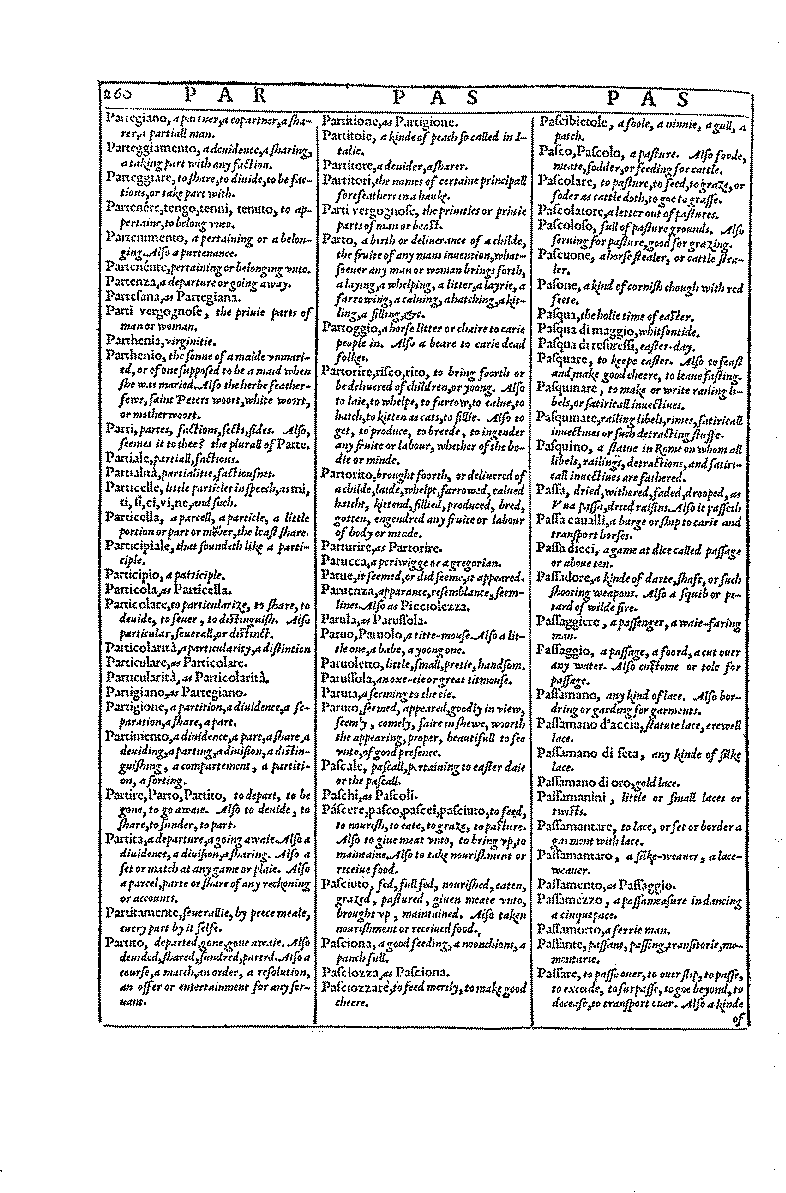 260 PAR PAS PAS
Partegiano, a partner, a copartner, a sha-
rer, a partiall man.
Parteggiamento, a deuidence, a sharing,
a taking part with any faction.
Parteggiare, to share, to diuide, to be fac-
tious, or take part with.
Partenére, tengo, tenni, tenuto, to ap-
pertaine, to belong vnto.
Partenimento, a pertaining or a belon-
ging. Also a purtenance.
Partenénte, pertaining or belonging vnto.
Partenza, a departure or going away.
Partesana, as Partegiana.
Parti vergognose, the priuie parts of
man or woman.
Parthenia, virginitie.
Parthenio, the sonne of a maide vnmari-
ed, or of one supposed to be a maid when
she was maried. Also the herbe feather-
few, saint Peters woort, white woort,
or motherwoort.
Parti, partes, factions, sects, sides. Also,
seemes it to thee? the plurall of Parte.
Partiale, partiall, factious.
Partialità, partialitie, factiousnes.
Particelle, little particles in speech, as mi,
ti, si, ci, vi, ne, and such.
Particella, a parcell, a particle, a little
portion or part or mover, the least share.
Participiale, that soundeth like a parti-
ciple.
Participio, a patriciple.
Particola, as Particella.
Particolare, to particularize, to share, to
deuide, to seuer, to distinguish. Also
particular, seuerall, or distinct.
Particolarità, a particularity, a distinction
Particulare, as Particolare.
Particularità, as Particolarità.
Partigiano, as Partegiano.
Partigione, a partition, a diuidence, a se-
paration, a share, a part.
Partimento, a diuidence, a part, a share, a
deuiding, a parting, a diuision, a distin-
guishing, a compartement, a partiti-
on, a sorting.
Partire, Parto, Partito, to depart, to be
gone, to go awaie. Also to deuide, to
share, to sunder, to part.
Partita, a departure, a going awaie. Also a
diuidence, a diuision, a sharing. Also a
set or match at any game or plaie. Also
a parcel, parte or share of any reckoning
or accounts.
Partitamente, seuerallie, by peece meale,
euery part by it selfe.
Partito, departed, gone, gone awaie. Also
deuided, shared, sundred, parted. Also a
course, a match, an order, a resolution,
an offer or entertainment for any ser-
uant.
Partitione, as Partigione.
Partitoie, a kinde of peach so called in I-
talie.
Partitore, a deuider, a sharer.
Partitori, the names of certaine principall
forefeathers in a hauke.
Parti vergognose, the priuities or priuie
parts of man or beast.
Parto, a birth or deliuerance of a childe,
the fruite of any mans inuention, what-
soeuer any man or woman brings forth,
a laying, a whelping, a litter, a layrie, a
farrowing, a caluing, a hatching, a kit-
ling, a filling, &c.
Partoggio, a horse litter or chaire to carie
people in. Also a beare to carie dead
folkes.
Partorire, risco, rito, to bring foorth or
be deliuered of children, or yoong. Also
to laie, to whelpe, to farrow, to calue, to
hatch, to kitten as cats, to fillie. Also to
get, to produce, to breede, to ingender
any fruite or labour, whether of the bo-
die or minde.
Partorito, brought foorth, or deliuered of
a childe, laide, whelpt, farrowed, calued
hatcht, kittend, fillied, produced, bred,
gotten, engendred any fruite or labour
of body or minde.
Parturire, as Partorire.
Parucca, a periwigge or a gregorian.
Parue, it seemed, or did seeme, it appeared.
Paruenza, apparence, resemblance, seem-
lines. Also as Picciolezza.
Parula, as Parussola.
Paruo, Paruolo, a titte-mouse. Also a lit-
tle one, a babe, a yoong one.
Paruoletto, little, small, pretie, handsom.
Parussola, an oxe-eie or great titmouse.
Paruta, a seeming to the eie.
Paruto, seemed, appeared, goodly in view,
seemly, comely, faire in shewe, worth
the appearing, proper, beautifull to see
vnto, of good presence.
Pascale, pascall, pertaining to easter daie
or the pascall.
Paschi, as Pascoli.
Páscere, pasco, pascei, pasciuto, to feed,
to nourish, to eate, to graze, to pasture.
Also to giue meat vnto, to bring vp, to
maintaine. Also to take nourishment or
receiue food.
Pasciuto, fed, full fed, nourished, eaten,
grazed, pastured, giuen meate vnto,
brought vp, maintained. Also taken
nourishment or receiued food.
Pasciona, a good feeding, a nounchion, a
panch full.
Pasciozza, as Pasciona.
Pasciozzare, to feed merily, to make good
cheere.
Pascibietole, a foole, a ninnie, a gull, a
patch.
Pasco, Pascolo, a pasture. Also foode,
meate, fodder, or feeding for cattle.
Pascolare, to pasture, to feed, to graze, or
foder as cattle doth, to goe to grasse.
Pascolatore, a letter out of pastures.
Pascoloso, full of pasture grounds. Also
seruing for pasture, good for grazing.
Pascuone, a horse stealer, or cattle stea-
ler.
Pasone, a kind of cornish chough with red
feete.
Pasqua, the holie time of easter.
Pasqua di maggio, whitsontide.
Pasqua di resuressi, easter-day.
Pasquare, to keepe easter. Also to feast
and make good cheere, to leaue fasting.
Pasquinare, to make or write railing li-
bels, or satiricall inuectiues.
Pasquinate, railing libels, rimes, satiricall
inuectiues or such detracting stuffe.
Pasquino, a statue in Rome on whom all
libels, railings, detractions, and satiri-
call inuectiues are fathered.
Passa, dried, withered, faded, drooped, as
Vua passa, dried raisins. Also it passeth
Passa caualli, a barge or ship to carie and
transport horses.
Passa dieci, a game at dice called passage
or aboue ten.
Passadore, a kinde of darte, shaft, or such
shooting weapons. Also a squib or pe-
tard of wilde fire.
Passaggiere, a passenger, a waie-faring
man.
Passaggio, a passage, a foord, a cut ouer
any water. Also custome or tole for
passage.
Passamano, any kind of lace. Also bor-
dring or garding for garments.
Passamano d'accia, statute lace, crewell
lace.
Passamano di seta, any kinde of silke
lace.
Passamano di oro, gold lace.
Passamanini, little or small laces or
twists.
Passamantare, to lace, or set or border a
garment with lace.
Passamantaro, a silke-weauer, a lace-
weauer.
Passamento, as Passaggio.
Passamezzo, a passameasure in dancing
a cinquepace.
Passamorto, a ferrie man.
Passante, passant, passing, transitorie, mo-
mentarie.
Passare, to passe ouer, to ouerslip, to passe,
to exceede, to surpasse, to goe beyond, to
decease, to transport ouer. Also a kinde
of